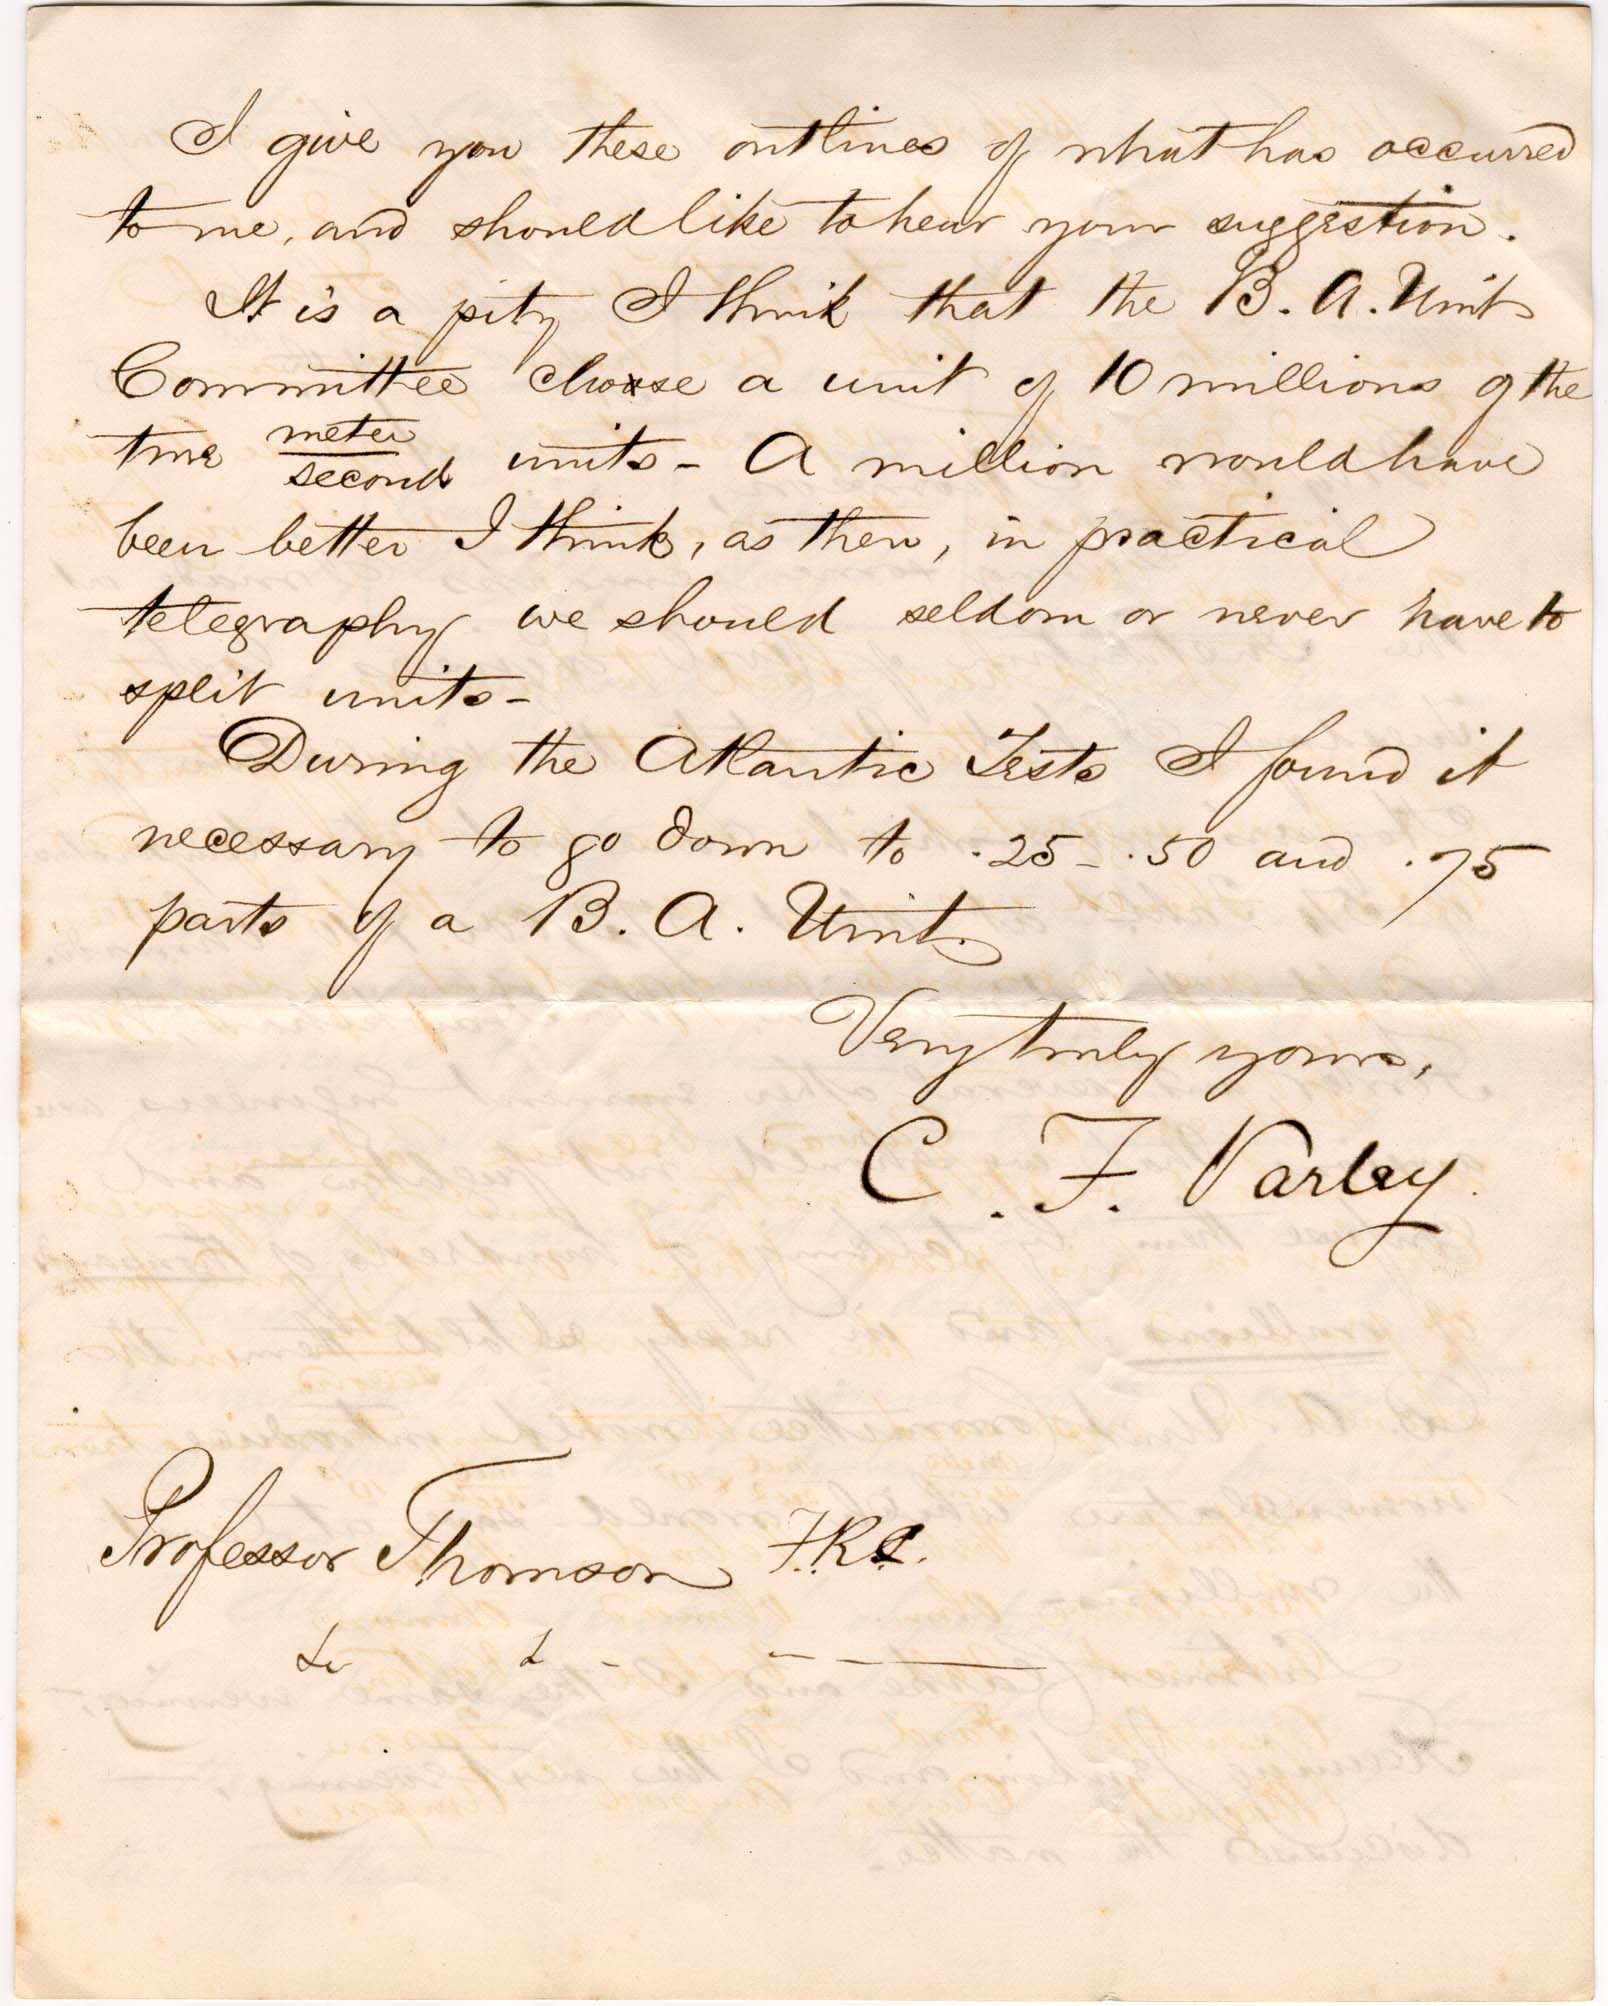 I give you these outlines of what has occurred
to me, and should like to hear your suggestion.
It is a pity I think that the B. A. Unit
Committee choose a unit of 10 millions of the
true meter/second units - A million would have
been better I think, as then, in practical
telegraphy we should seldom or never have to
split units -
During the Atlantic Tests I found it
necessary to go down to .25 - .50 and .75
parts of a B. A. Unit.
Very truly yours,
C. F. Varley.
Professor Thomson F.R.S.